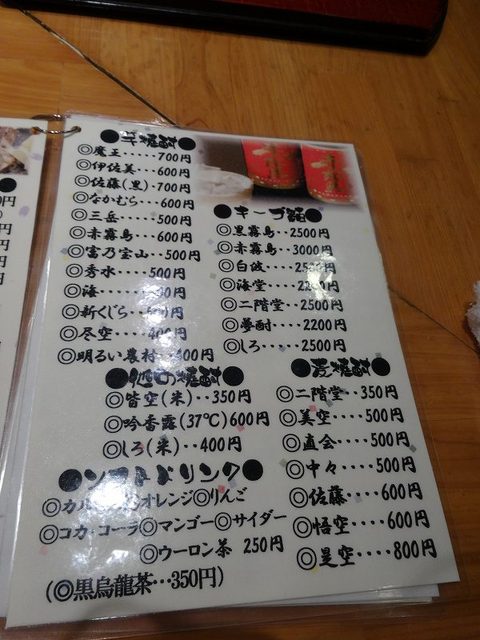 ●芋焼酎●
◎魔王·····700円
◎伊佐美···600円
◎佐藤(黒)··700円
◎なかむら··600円
◎三岳·····500円
◎赤霧島···600円
◎富乃宝山··500円
◎秀水····500円
◎海 円
◎新くじら 円
◎尽空····400円
◎明るい農村··400円
●キープ
◎黒霧島··2500円
◎赤霧島··3000円
◎白波····2500円
◎海堂····2200円
◎二階堂···2500円
◎夢酎····2200円
◎しろ····2500円
●他の焼酎●
◎皆空(米)··350円
◎吟香露(37℃)600円
◎しろ(米)··400円
●麦焼酎●
◎二階堂··350円
◎美空····500円
◎直会····500円
◎中々····500円
◎佐藤····600円
◎悟空····600円
◎是空····800円
●ソフトドリンク●
◎オレンジ◎りんご
◎コカ·コーラ◎マンゴー◎サイダー
◎ウーロン茶 250円
(◎黒烏龍茶···350円)